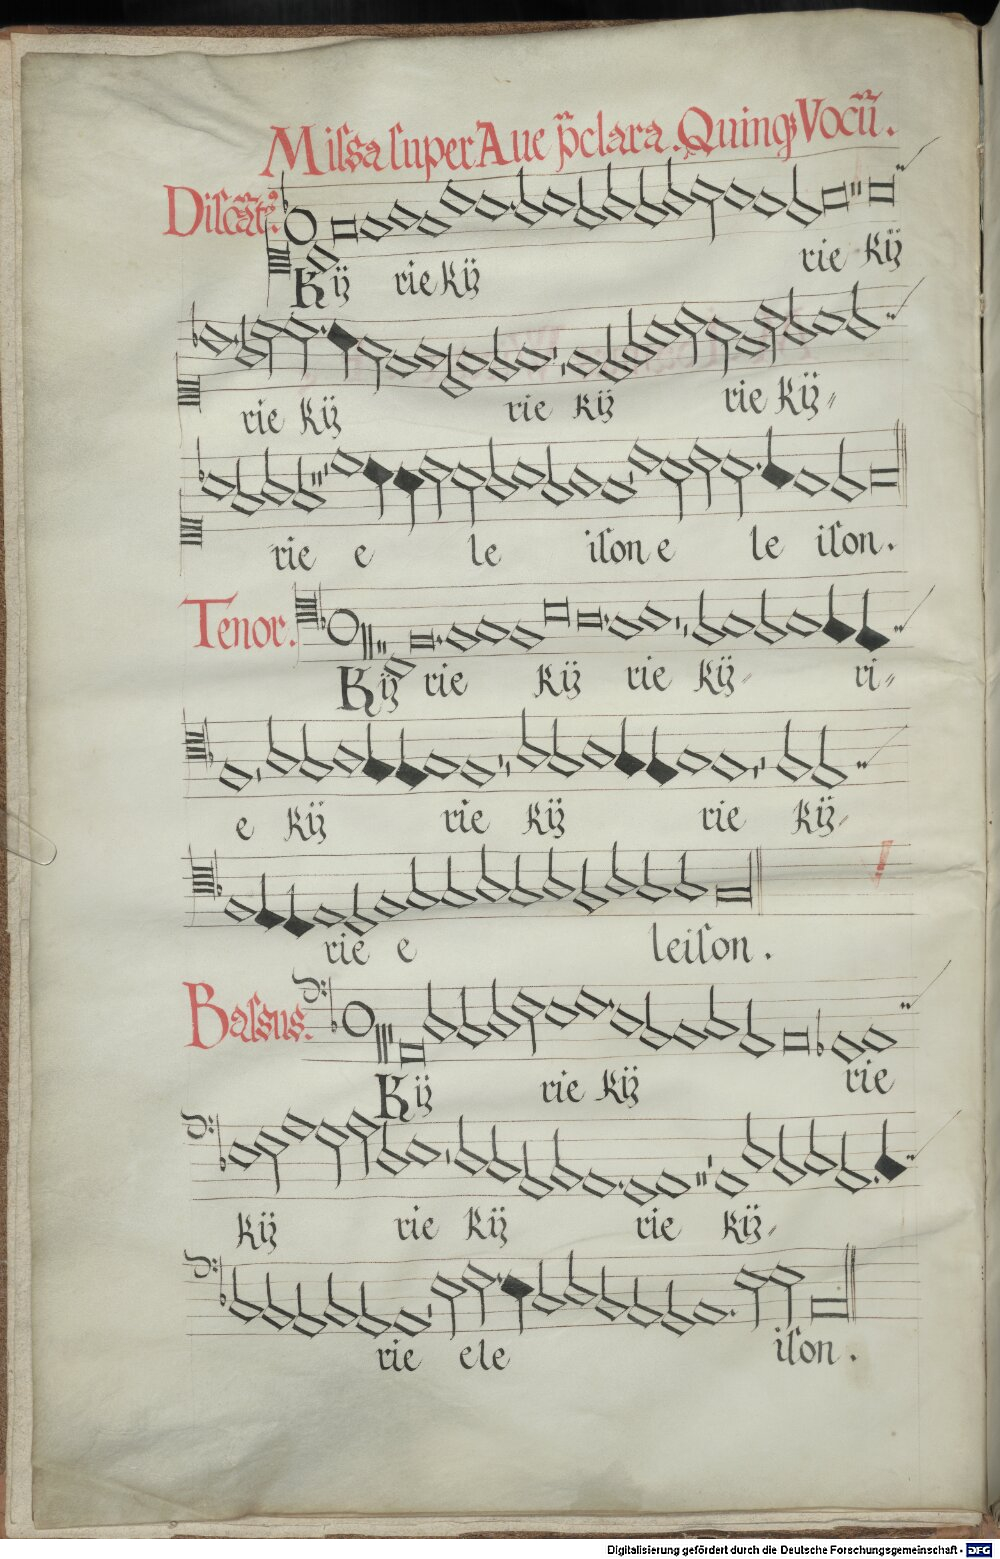 Miſsa ſuper Aue p̃clara. Quinqꝫ Vocũ.
Diſcãtꝰ.
Kÿ rie Kÿ rie Kÿ
rie Kÿ rie Kÿ rie Kÿ
rie e le iſon e le iſon.
Tenor.
Kÿ rie Kÿ rie Kÿ ri-
e Kÿ rie Kÿ rie Kÿ
rie e leiſon.
Baſsus.
Kÿ rie Kÿ rie
Kÿ rie Kÿ rie Kÿ
rie ele iſon.
Digitalisierung gefördert durch die Deutsche Forschungsgemeinschaft - DFG